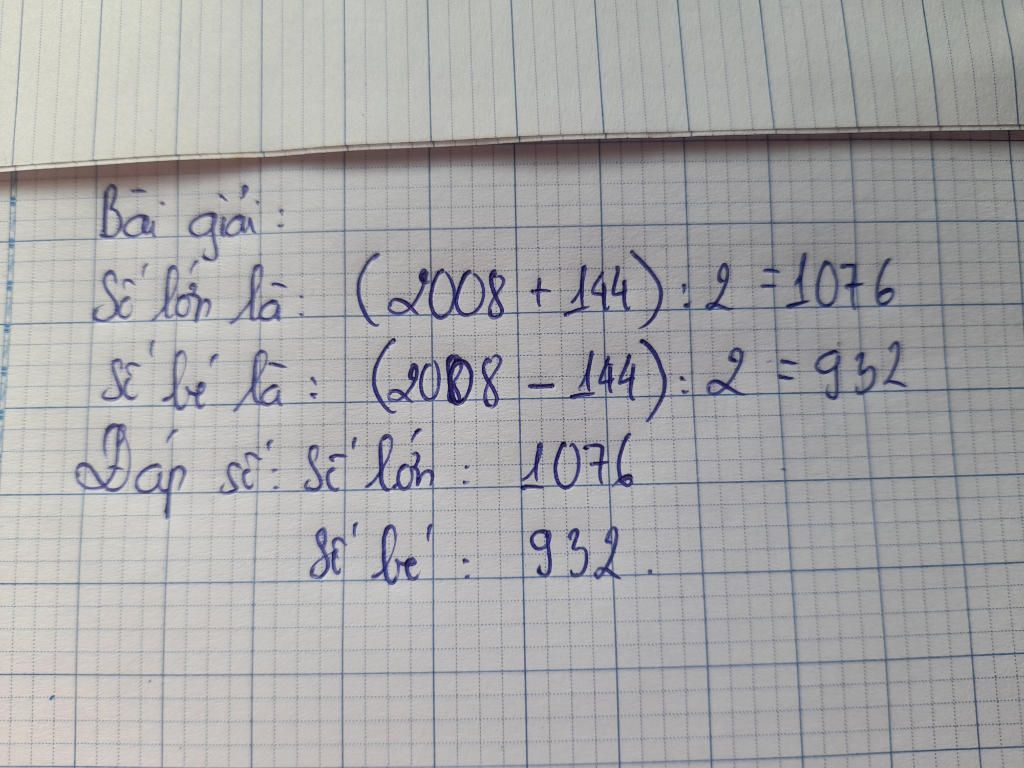 Bài giải:
Số lớn là: (2008 + 144) : 2 = 1076
Số bé là: (2008 - 144) : 2 = 932
Đáp số: Số lớn: 1076
Số bé: 932.